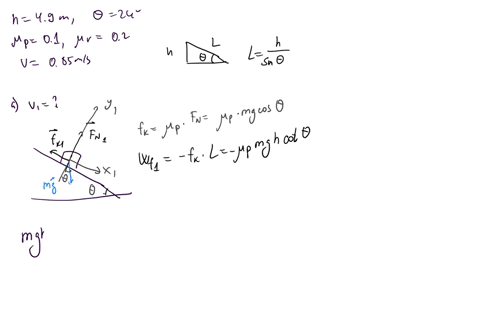 h = 4.9 m, θ = 24°
μp = 0.1, μr = 0.2
v = 0.85 m/s
h
L
θ
L = h / sin θ
v₁ = ?
y₁
F⃗N1
x₁
mg⃗
θ
θ
fκ = μp · FN = μp · mg cos θ
= −fκ · L = −μp mg h cot θ
mgh